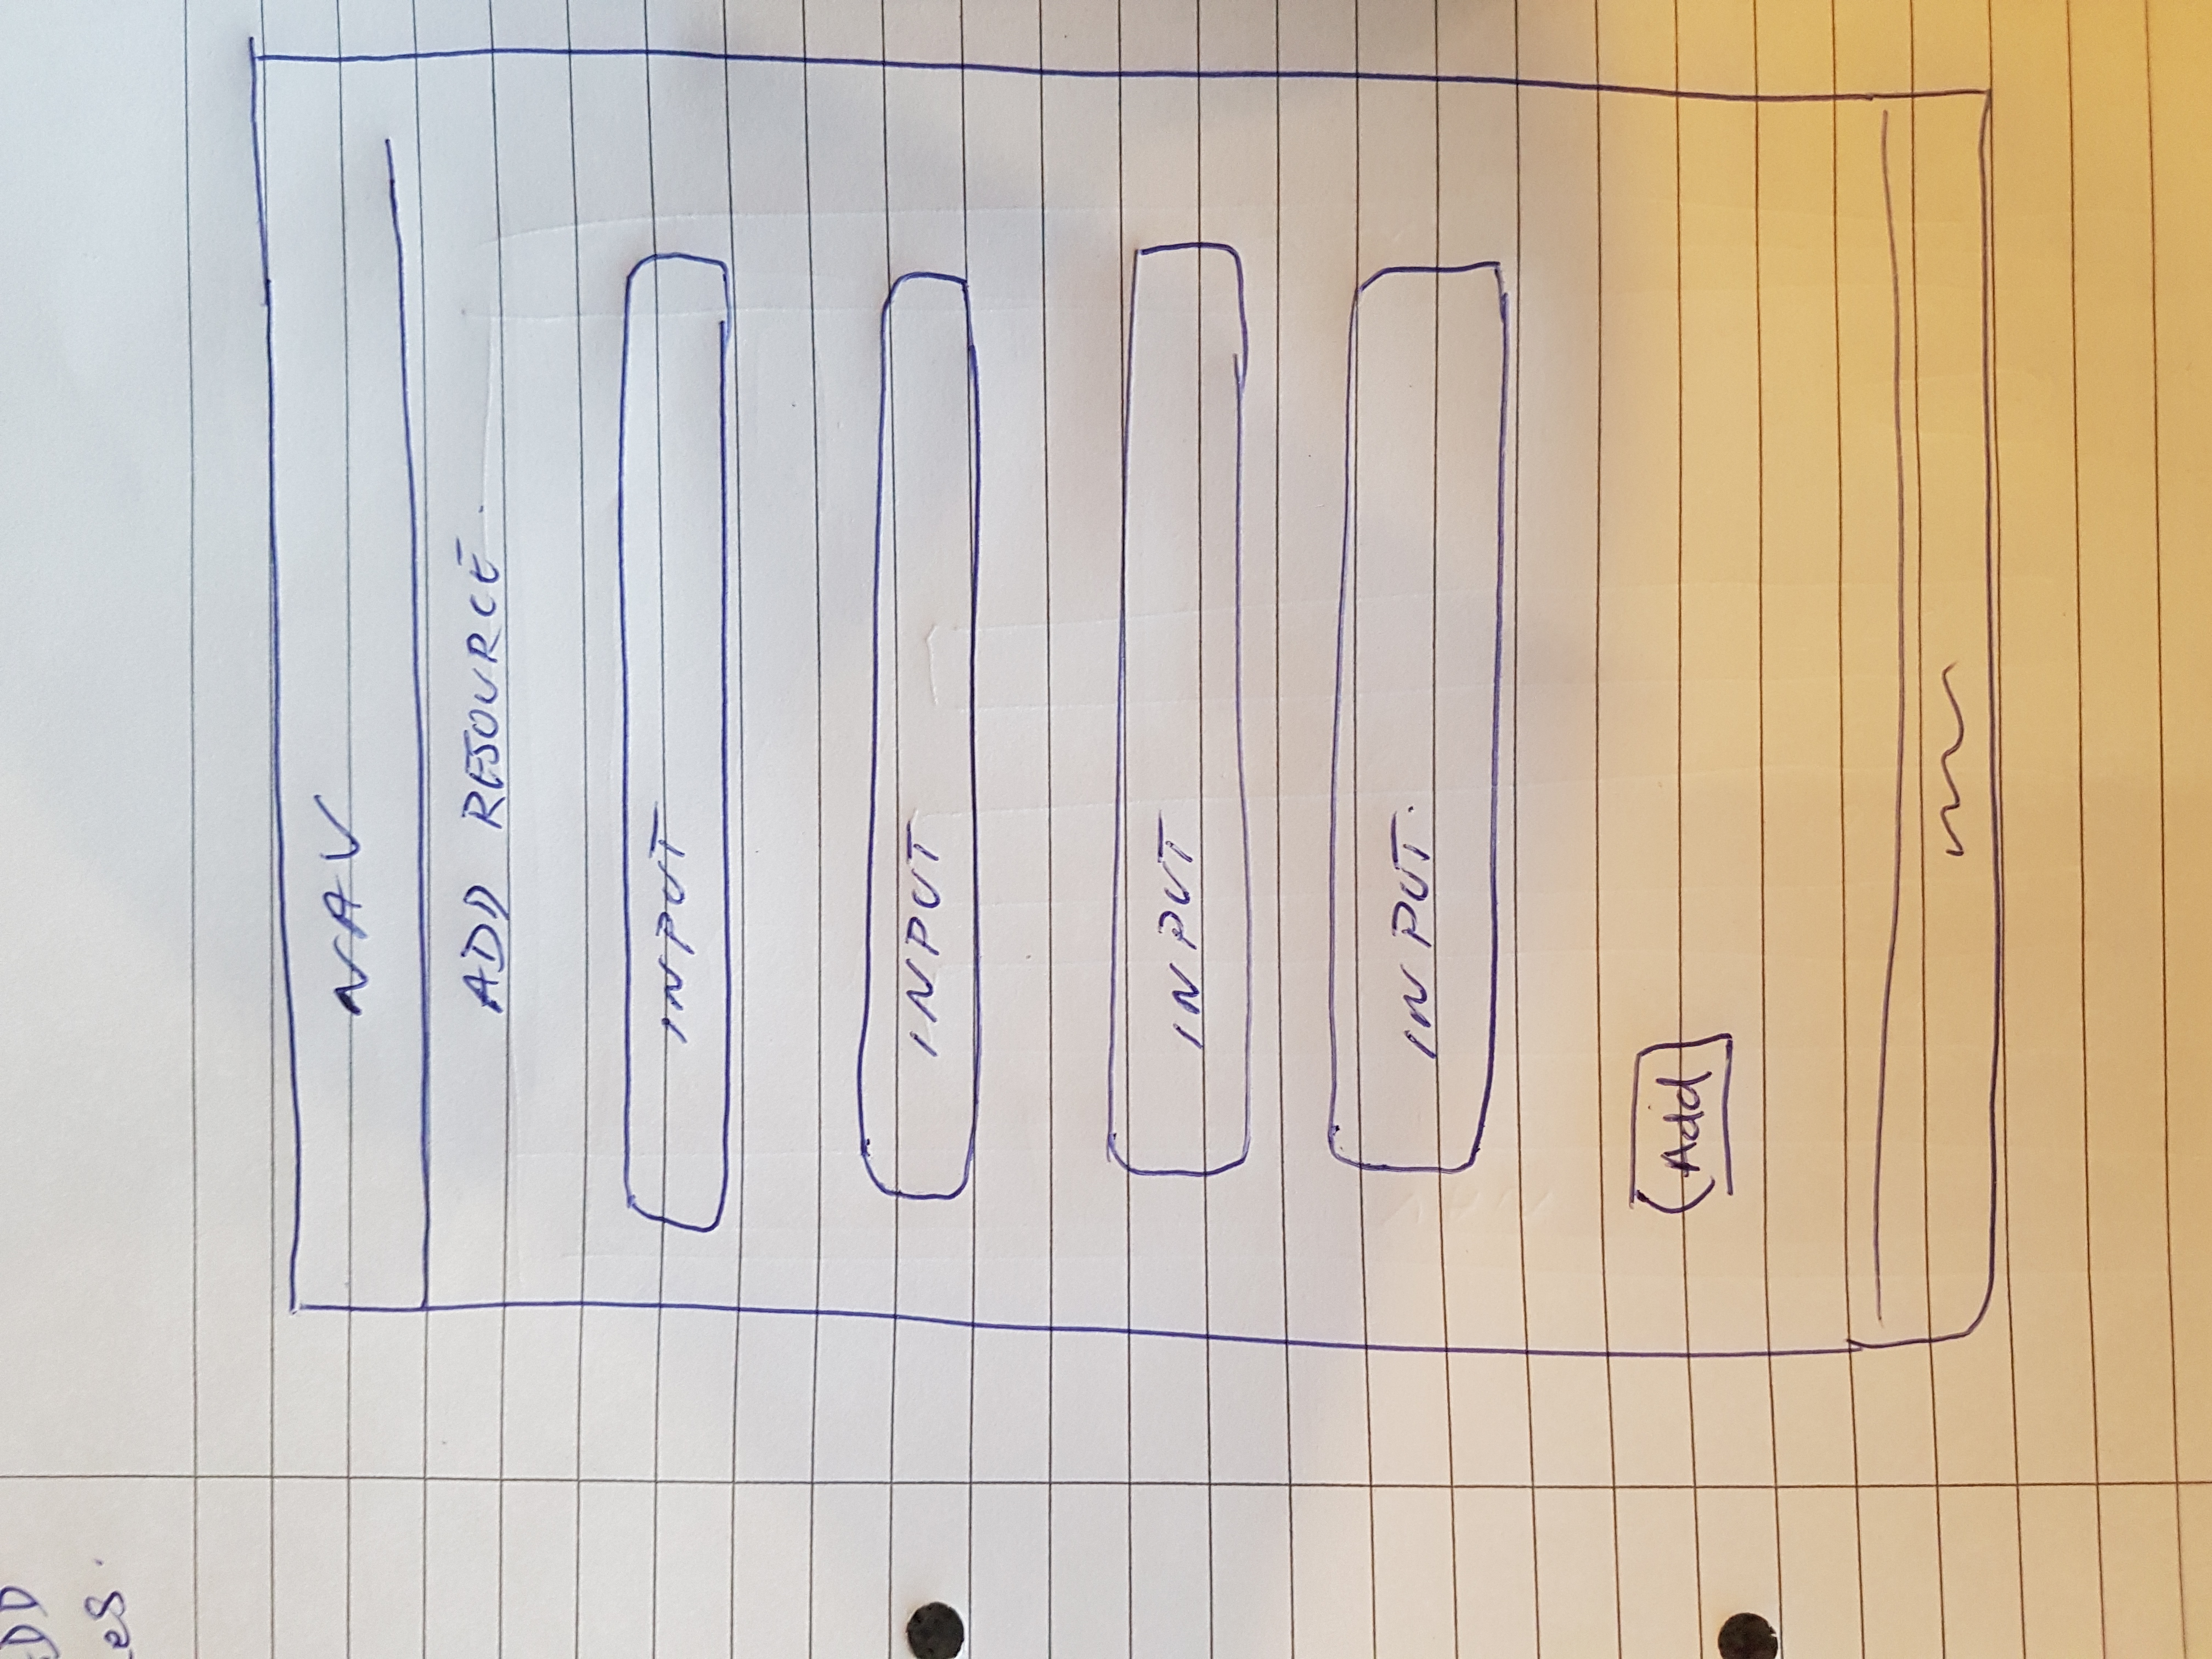 NAV
ADD RESOURCE.
INPUT
INPUT
INPUT
INPUT.
Add